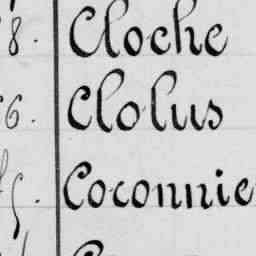 8. Cloche
6. Clolus
5. Coconnie